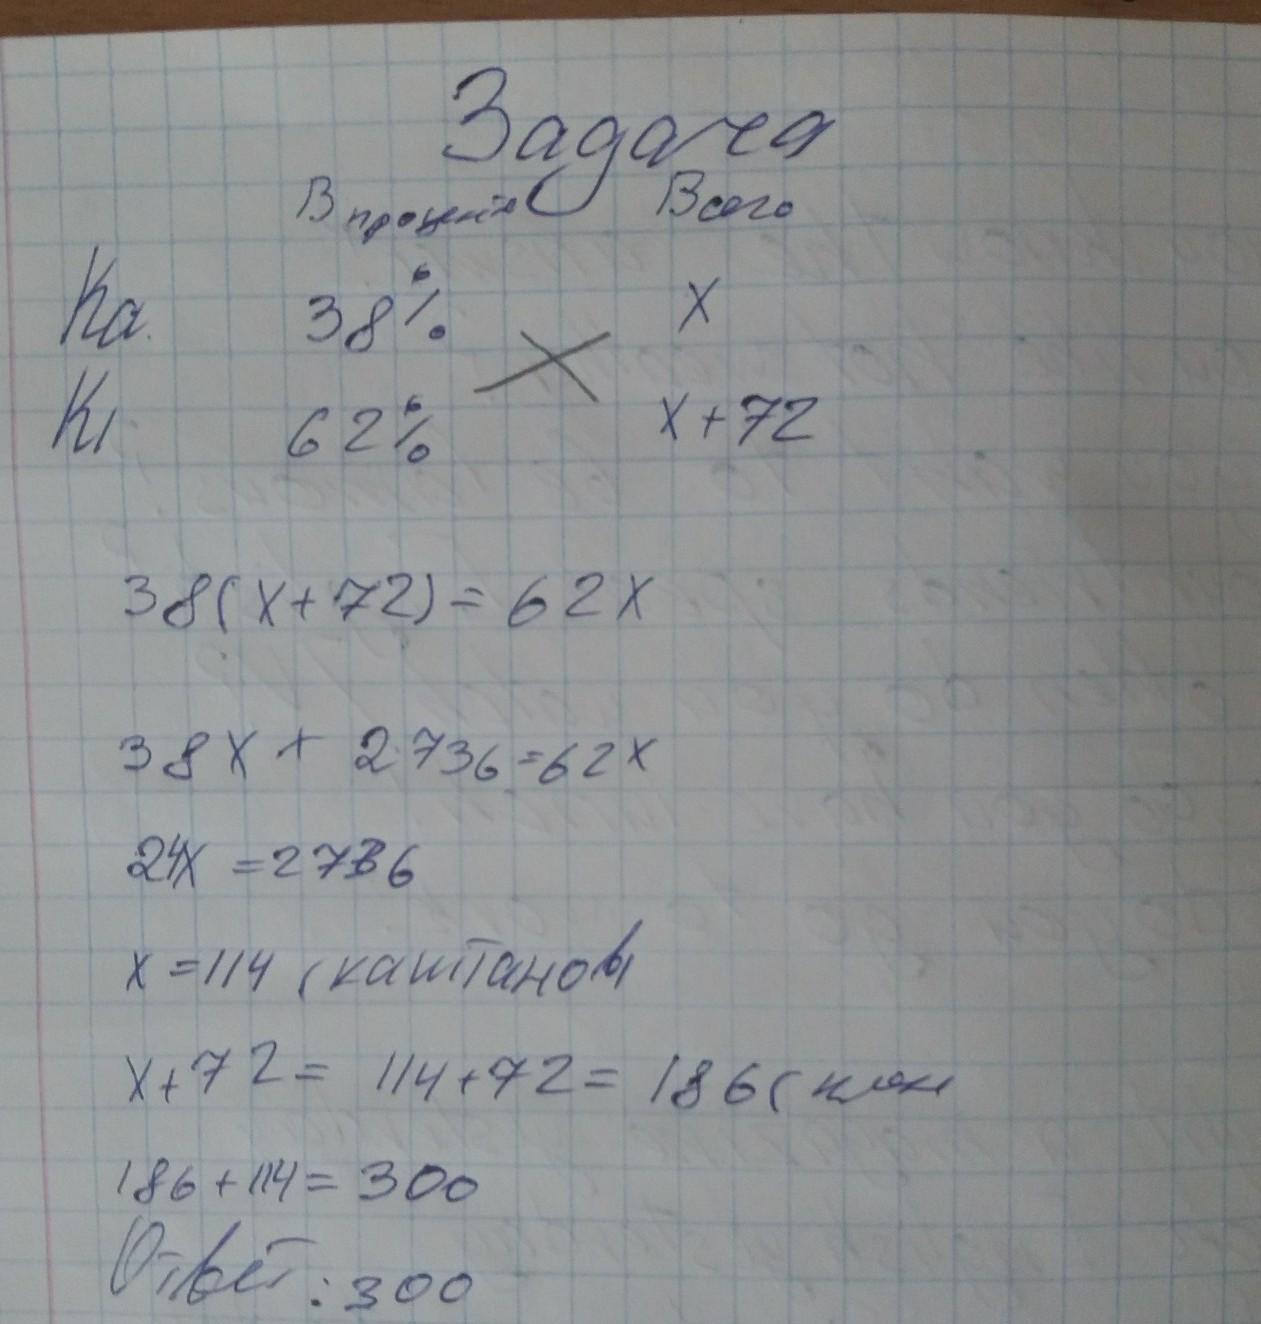 Задача
В процента Всего
Ка. 38% х
Кл 62% х+72
38(х+72)=62х
38х+2736=62х
24х=2736
х=114 (каштанов)
х+72= 114+72= 186( клен
186+114=300
Ответ:300